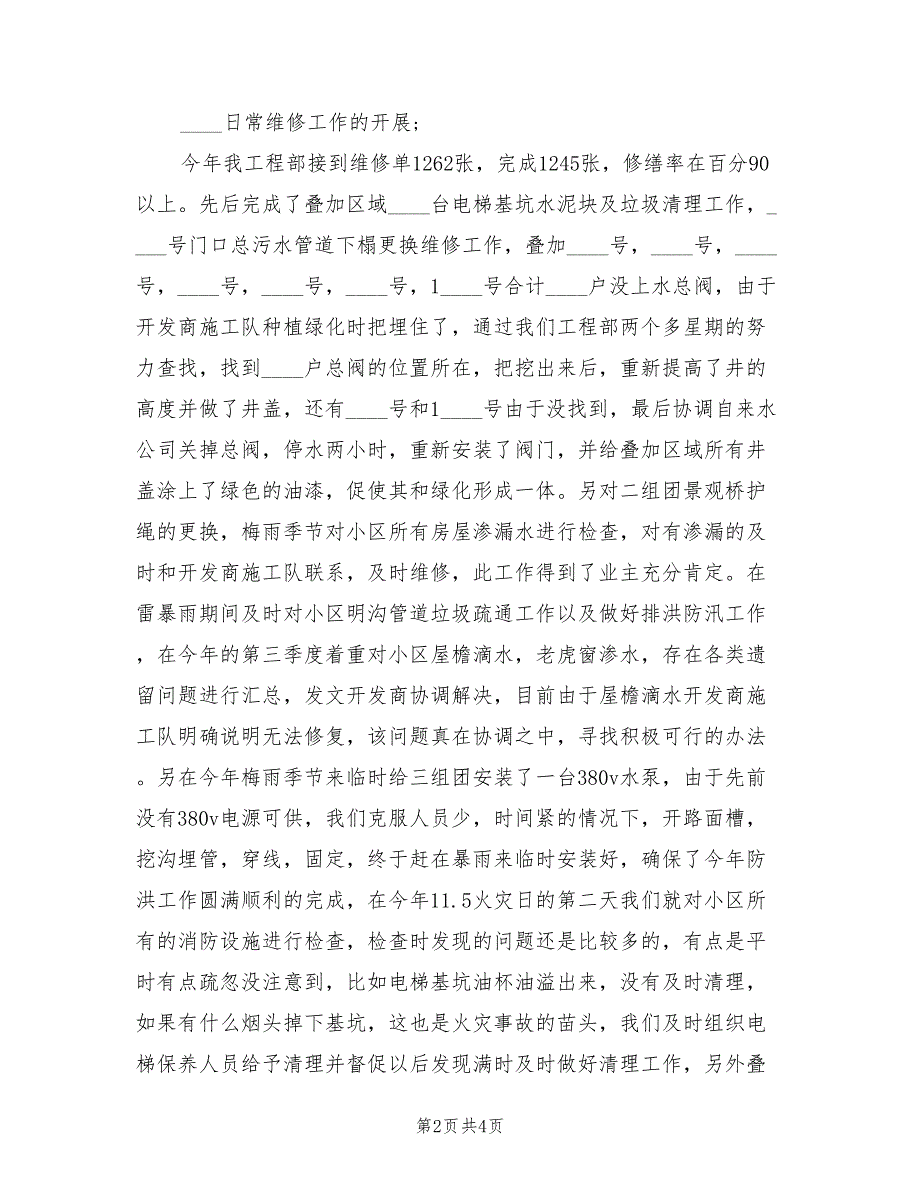 ____日常维修工作的开展;
今年我工程部接到维修单1262张，完成1245张，修缮率在百分90
以上。先后完成了叠加区域____台电梯基坑水泥块及垃圾清理工作，_
___号门口总污水管道下榻更换维修工作，叠加____号，____号，____
号，____号，____号，____号，1____号合计____户没上水总阀，由于
开发商施工队种植绿化时把埋住了，通过我们工程部两个多星期的努
力查找，找到____户总阀的位置所在，把挖出来后，重新提高了井的
高度并做了井盖，还有____号和1____号由于没找到，最后协调自来水
公司关掉总阀，停水两小时，重新安装了阀门，并给叠加区域所有井
盖涂上了绿色的油漆，促使其和绿化形成一体。另对二组团景观桥护
绳的更换，梅雨季节对小区所有房屋渗漏水进行检查，对有渗漏的及
时和开发商施工队联系，及时维修，此工作得到了业主充分肯定。在
雷暴雨期间及时对小区明沟管道垃圾疏通工作以及做好排洪防汛工作
，在今年的第三季度着重对小区屋檐滴水，老虎窗渗水，存在各类遗
留问题进行汇总，发文开发商协调解决，目前由于屋檐滴水开发商施
工队明确说明无法修复，该问题真在协调之中，寻找积极可行的办法
。另在今年梅雨季节来临时给三组团安装了一台380v水泵，由于先前
没有380v电源可供，我们克服人员少，时间紧的情况下，开路面槽，
挖沟埋管，穿线，固定，终于赶在暴雨来临时安装好，确保了今年防
洪工作圆满顺利的完成，在今年11.5火灾日的第二天我们就对小区所
有的消防设施进行检查，检查时发现的问题还是比较多的，有点是平
时有点疏忽没注意到，比如电梯基坑油杯油溢出来，没有及时清理，
如果有什么烟头掉下基坑，这也是火灾事故的苗头，我们及时组织电
梯保养人员给予清理并督促以后发现满时及时做好清理工作，另外叠
第2页共4页